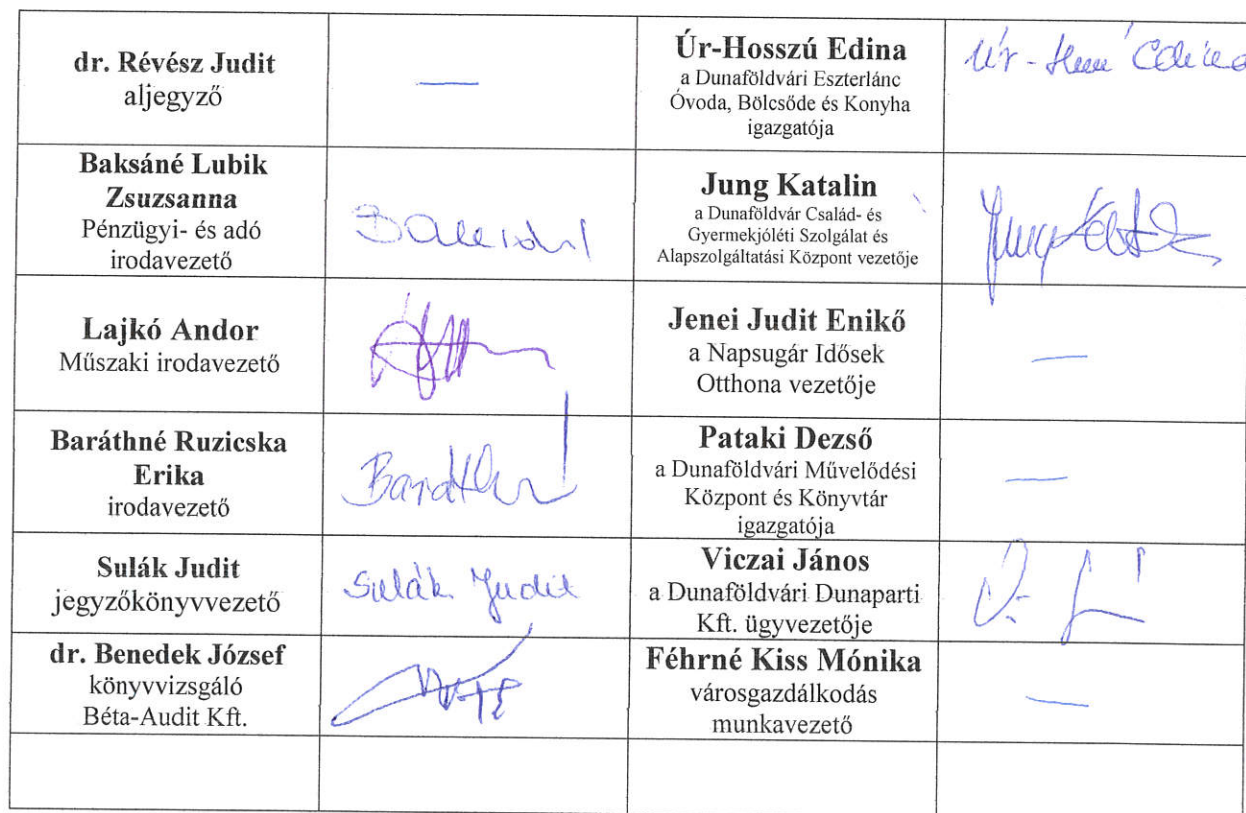 dr. Révész Judit
aljegyző
—
Úr-Hosszú Edina
a Dunaföldvári Eszterlánc
Óvoda, Bölcsőde és Konyha
igazgatója
Úr-
Baksáné Lubik
Zsuzsanna
Pénzügyi- és adó
irodavezető
Jung Katalin
a Dunaföldvár Család- és
Gyermekjóléti Szolgálat és
Alapszolgáltatási Központ vezetője
Jung
Lajkó Andor
Műszaki irodavezető
Jenei Judit Enikő
a Napsugár Idősek
Otthona vezetője
—
Baráthné Ruzicska
Erika
irodavezető
Pataki Dezső
a Dunaföldvári Művelődési
Központ és Könyvtár
igazgatója
—
Sulák Judit
jegyzőkönyvvezető
Sulák Judit
Viczai János
a Dunaföldvári Dunaparti
Kft. ügyvezetője
dr. Benedek József
könyvvizsgáló
Béta-Audit Kft.
Féhrné Kiss Mónika
városgazdálkodás
munkavezető
—